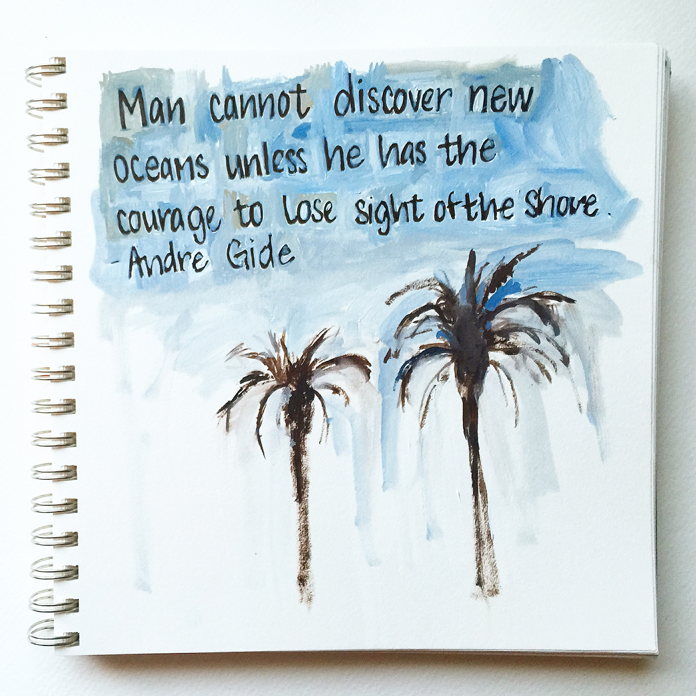 Man cannot discover new
oceans unless he has the
courage to lose sight of the shore.
- Andre Gide